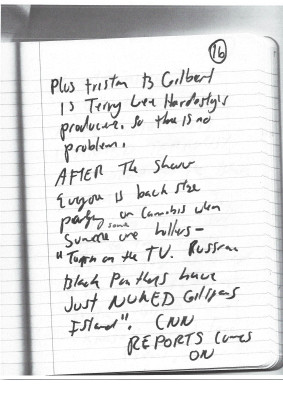 16
Plus tristan B Gilbert
is Terry Lee Hardesty's
producer. So there is no
problem.
AFTER The Show
Everyone is back stage
party on Cannabis when
some
Someone hollers -
"Turn on the TV. Russian
Black Panthers have
Just NUKED Gilligans
Island". CNN
REPORTS comes
ON